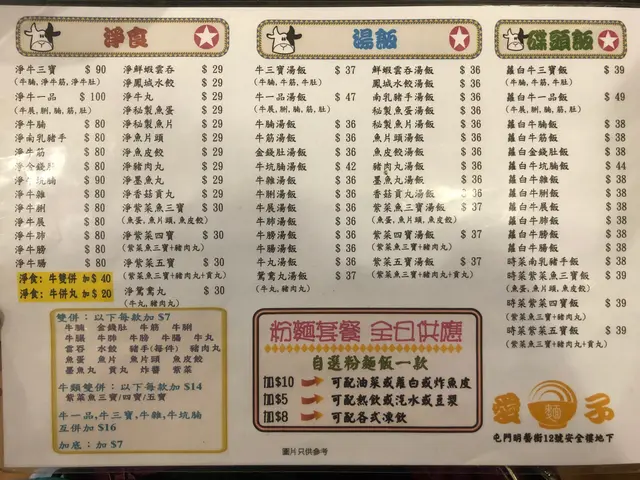 淨食
淨牛三寶 $ 90
(牛腩, 淨牛筋, 淨牛肚)
淨牛一品 $ 100
(牛展, 脷, 腩, 筋, 肚)
淨牛腩 $ 80
淨南乳豬手 $ 80
淨牛筋 $ 80
淨金錢肚 $ 80
淨牛坑腩 $ 90
淨牛雜 $ 80
淨牛脷 $ 80
淨牛展 $ 80
淨牛肺 $ 80
淨牛膀 $ 80
淨牛腸 $ 80
淨食: 牛雙併 加$ 40
淨食: 牛併丸 加$ 20
淨鮮蝦雲吞 $ 29
淨鳳城水餃 $ 29
淨牛丸 $ 29
淨秘製魚蛋 $ 29
淨秘製魚片 $ 29
淨魚片頭 $ 29
淨魚皮餃 $ 29
淨豬肉丸 $ 29
淨墨魚丸 $ 29
淨香菇貢丸 $ 29
淨紫菜魚三寶 $ 30
(魚蛋, 魚片頭, 魚皮餃)
淨紫菜四寶 $ 30
(紫菜魚三寶+豬肉丸)
淨紫菜五寶 $ 30
(紫菜魚三寶+豬肉丸+貢丸)
淨鴛鴦丸 $ 30
(牛丸, 豬肉丸)
湯飯
牛三寶湯飯 $ 37
(牛腩, 牛筋, 牛肚)
牛一品湯飯 $ 47
(牛展, 脷, 腩, 筋, 肚)
牛腩湯飯 $ 36
牛筋湯飯 $ 36
金錢肚湯飯 $ 36
牛坑腩湯飯 $ 42
牛雜湯飯 $ 36
牛脷湯飯 $ 36
牛展湯飯 $ 36
牛肺湯飯 $ 36
牛膀湯飯 $ 36
牛腸湯飯 $ 36
牛丸湯飯 $ 36
鴛鴦丸湯飯 $ 37
(牛丸, 豬肉丸)
鮮蝦雲吞湯飯 $ 36
鳳城水餃湯飯 $ 36
南乳豬手湯飯 $ 36
秘製魚蛋湯飯 $ 36
秘製魚片湯飯 $ 36
魚片頭湯飯 $ 36
魚皮餃湯飯 $ 36
豬豬肉丸湯飯 $ 36
墨魚丸湯飯 $ 36
香菇貢丸湯飯 $ 36
紫菜魚三寶湯飯 $ 37
(魚蛋, 魚片頭, 魚皮餃)
紫菜四寶湯飯 $ 37
(紫菜魚三寶+豬肉丸)
紫菜五寶湯飯 $ 37
(紫菜魚三寶+豬肉丸+貢丸)
碟頭飯
蘿白牛三寶飯 $ 39
(牛腩, 牛筋, 牛肚)
蘿白牛一品飯 $ 49
(牛展, 脷, 腩, 筋, 肚)
蘿白牛腩飯 $ 38
蘿白牛筋飯 $ 38
蘿白金錢肚飯 $ 38
蘿白牛坑腩飯 $ 44
蘿白牛雜飯 $ 38
蘿白牛脷飯 $ 38
蘿白牛展飯 $ 38
蘿白牛肺飯 $ 38
蘿白牛膀飯 $ 38
蘿白牛腸飯 $ 38
時菜南乳豬手飯 $ 38
時菜紫菜魚三寶飯 $ 39
(魚蛋, 魚片頭, 魚皮餃)
時菜紫菜四寶飯 $ 39
(紫菜魚三寶+豬肉丸)
時菜紫菜五寶飯 $ 39
(紫菜魚三寶+豬肉丸+貢丸)
雙併: 以下每款加 $7
牛腩 金錢肚 牛筋 牛脷
牛腸 牛肺 牛膀 牛腸 牛丸
雲吞 水餃 豬手(每件) 豬肉丸
魚蛋 魚片 魚片頭 魚皮餃
墨魚丸 貢丸 炸醬 紫菜
牛類雙併: 以下每款加 $14
紫菜魚三寶/四寶/五寶
牛一品,牛三寶,牛雜,牛坑腩
互併加 $16
加底: 加 $7
粉麵套餐 全日供應
自選粉麵飯一款
加$10 可配油菜或蘿白或炸魚皮
加$5 可配熱飲或汽水或豆漿
加$8 可配各式凍飲
圖片只供參考
愛麵子
屯門明藝街12號安全樓地下